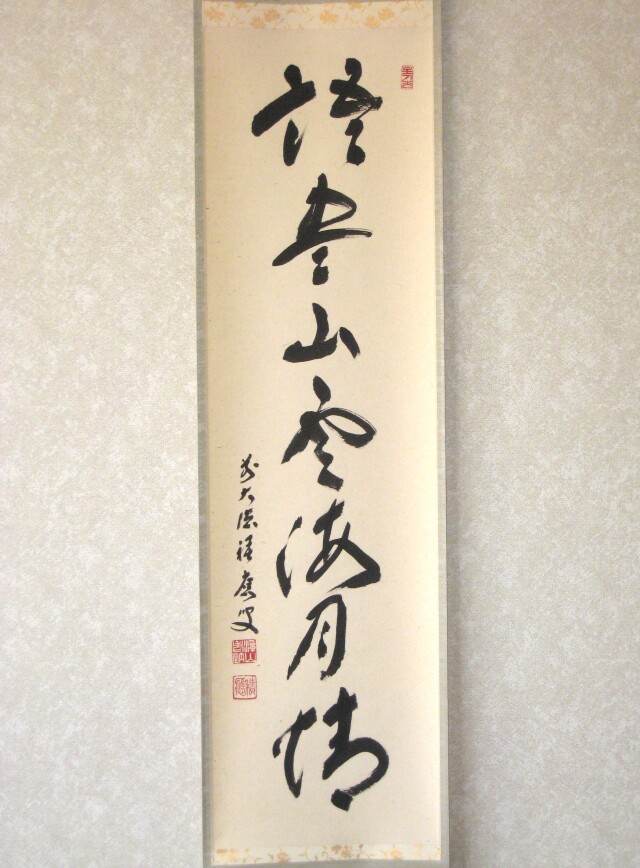 話盡山雲海月情
前大徳禅應叟